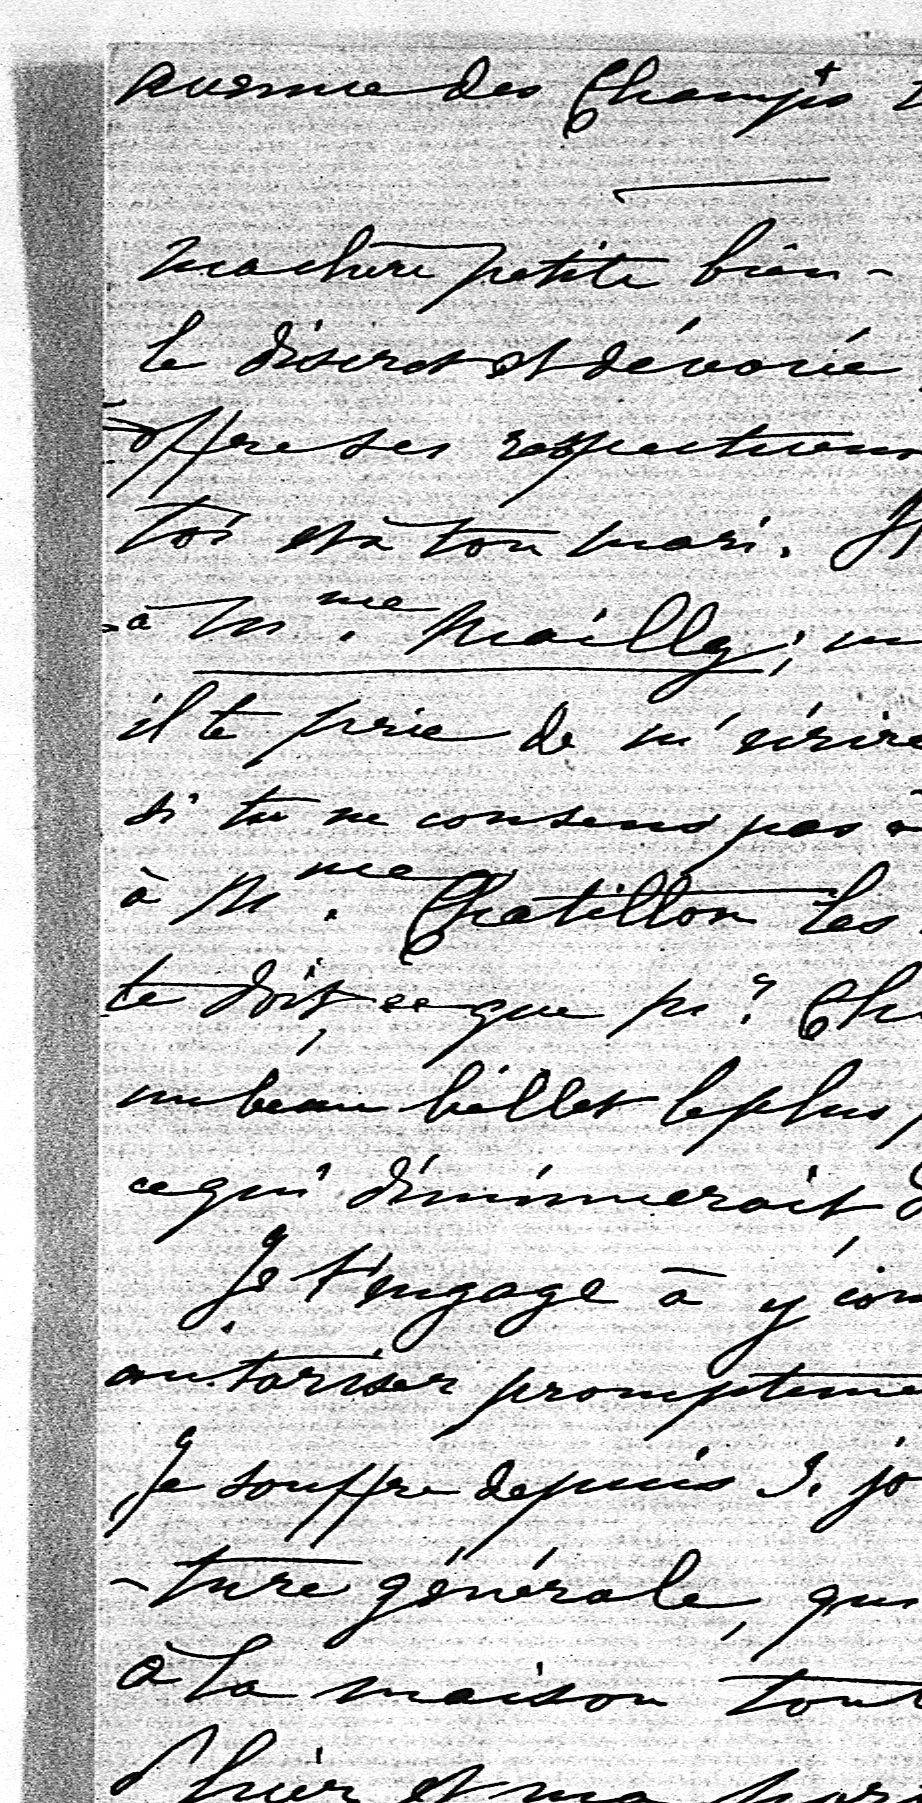 avenue des Champs
ma chère petite bien-
le discret et dévoué
offre ses respectueux
toi et à ton mari. Il
à Mme. Mailly;
il te prie de m'écrire
si tu ne consens pas à
à Mme. Chatillon les
te doit, ce que
un beau billet le plus
ce qui diminuerait
Je t'engage à y
autoriser prompteme
Je souffre depuis 3. jo
-ture générale, qui
à la maison tout
d'hier et ma